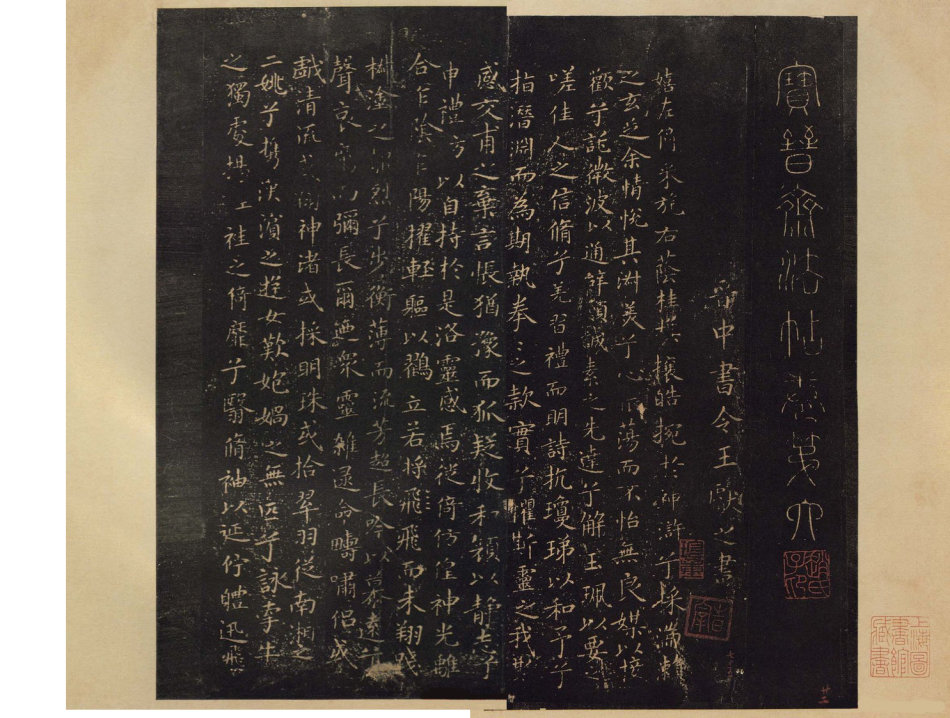 寶晉齋法帖卷第六
中書令王獻之書
嬉左倚采旄右蔭桂旗攘皓捥於神滸兮採湍瀨
之玄芝余情悅其淑美兮心而蕩而不怡無良媒以接
歡兮託微波以通辭願誠素之先達兮解玉珮以要之
嗟佳人之信脩兮羌習禮而明詩抗瓊珶以和予兮
指潛淵而為期執拳之款實兮懼斯靈之我
感交甫之棄言悵猶豫而狐疑收和顏以靜志兮
申禮防以自持於是洛靈感焉徙倚仿偟神光離
合乍陰乍陽擢輕軀以鶴立若將飛而未翔踐
椒塗之烈兮步衡薄而流芳超長吟以慕遠兮
聲哀而彌長爾迺眾靈雜遝命疇嘯侶或
戲清流或翔神渚或採明珠或拾翠羽從南湘之
二姚兮攜漢濱之遊女歎媧之無匹兮詠牽牛
之獨處揚之袿之倚靡兮翳脩袖以延佇體迅飛
上海圖書館藏書